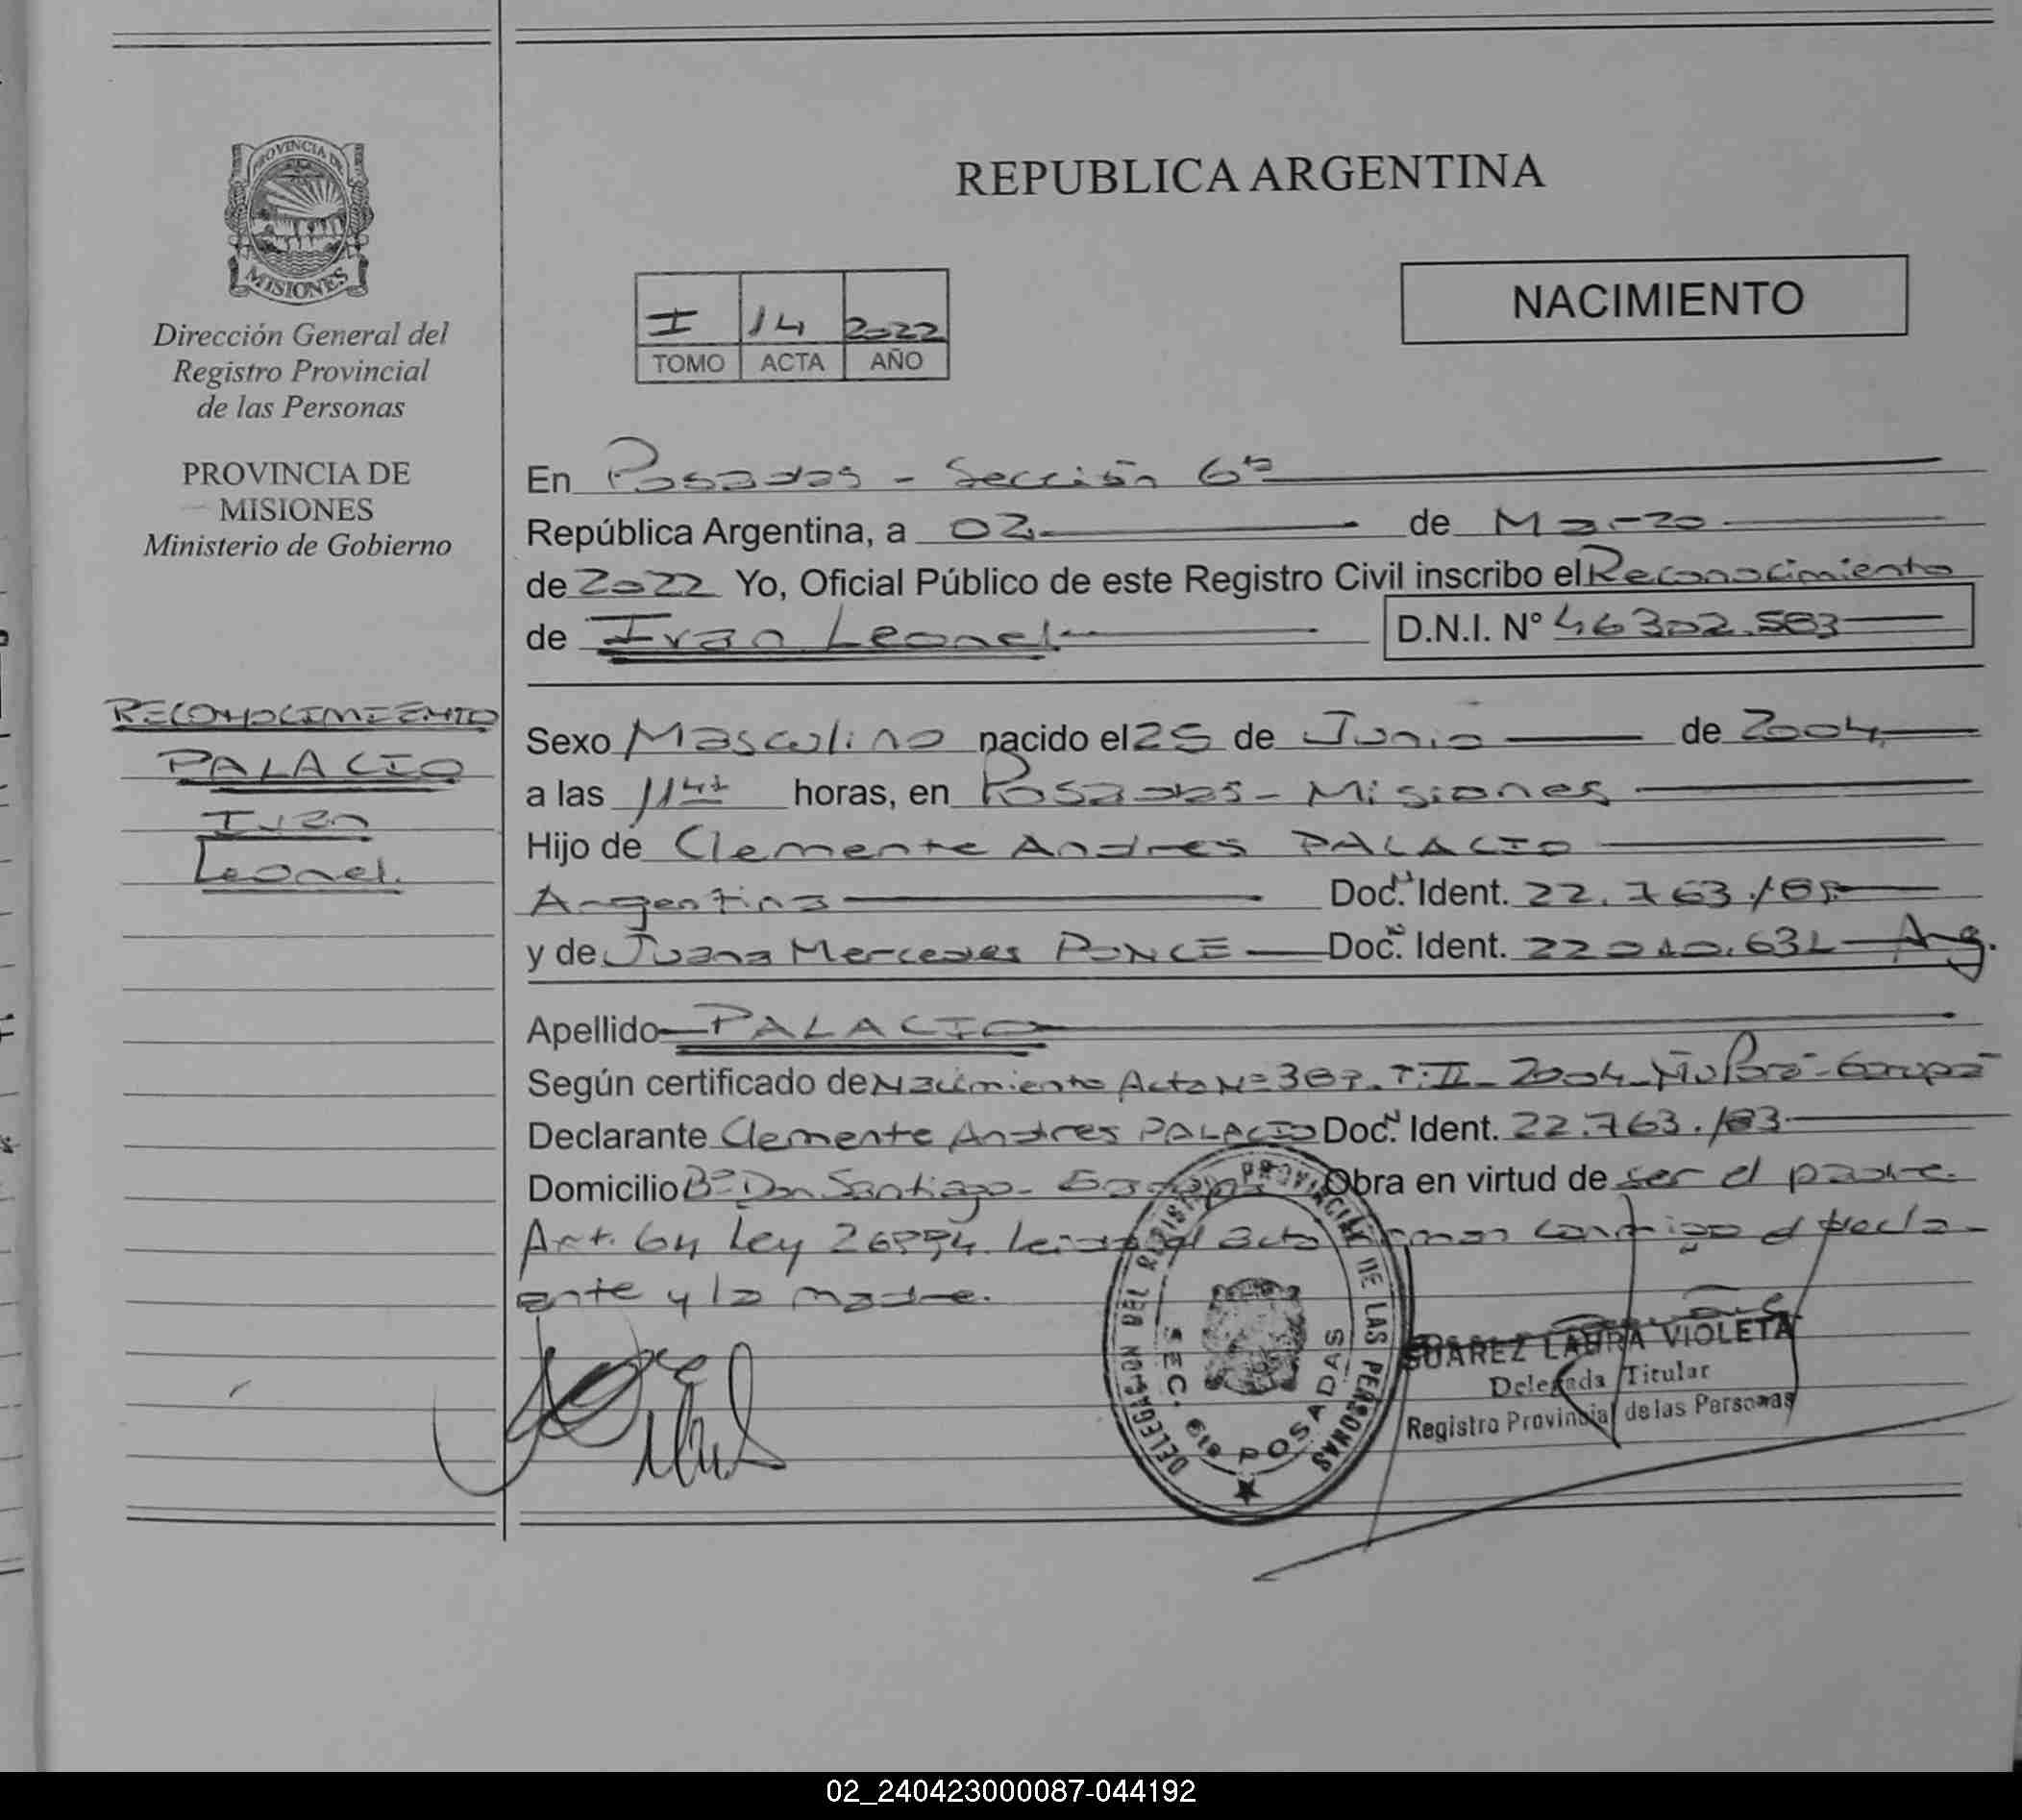 PROVINCIA DE
MISIONES
Dirección General del
Registro Provincial
de las Personas
PROVINCIA DE
MISIONES
Ministerio de Gobierno
RECONOCIMIENTO
PALACIO
Ivan
Leonel.
REPUBLICA ARGENTINA
NACIMIENTO
I 14 2022
TOMO ACTA AÑO
En Posadas - Sección 6ta
República Argentina, a 02 de Marzo
de 2022 Yo, Oficial Público de este Registro Civil inscribo el Reconocimiento
de Ivan Leonel D.N.I. N° 46302.583
Sexo Masculino nacido el 25 de Junio de 2004
a las 11 horas, en Posadas - Misiones
Hijo de Clemente Andres PALACIO
Argentina Doc. Ident. 22.763.
y de Juana Mercedes PONCE Doc. Ident. Arg.
Apellido PALACIO
Según certificado de Nacimiento Acta N= T: II - 2004
Declarante Clemente Andres PALACIO Doc. Ident. 22.763.183
Domicilio B° Don Santiago - Obra en virtud de ser el padre.
Art. 64 Ley 26994. Leida el acta firman conmigo el decla-
ante y la madre.
DELEGACION DEL REGISTRO PROVINCIAL DE LAS PERSONAS
SEC. 6ta POSADAS
SUAREZ LAURA VIOLETA
Delegada Titular
Registro Provincial de las Personas
02_240423000087-044192